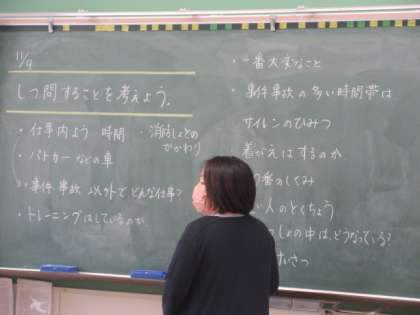 11/9
しつ問することを考えよう。
・仕事内よう 時間
・消防しょとの
かかわり
・パトカーなどの車
・事件 事故 以外で、どんな仕事?
・トレーニングはしているのか
・一番大変なこと
・事件事故の多い時間帯は
サイレンのひみつ
・着がえはするのか
番のしくみ
い人のとくちょう
しょの中は、どうなっている?
さつ